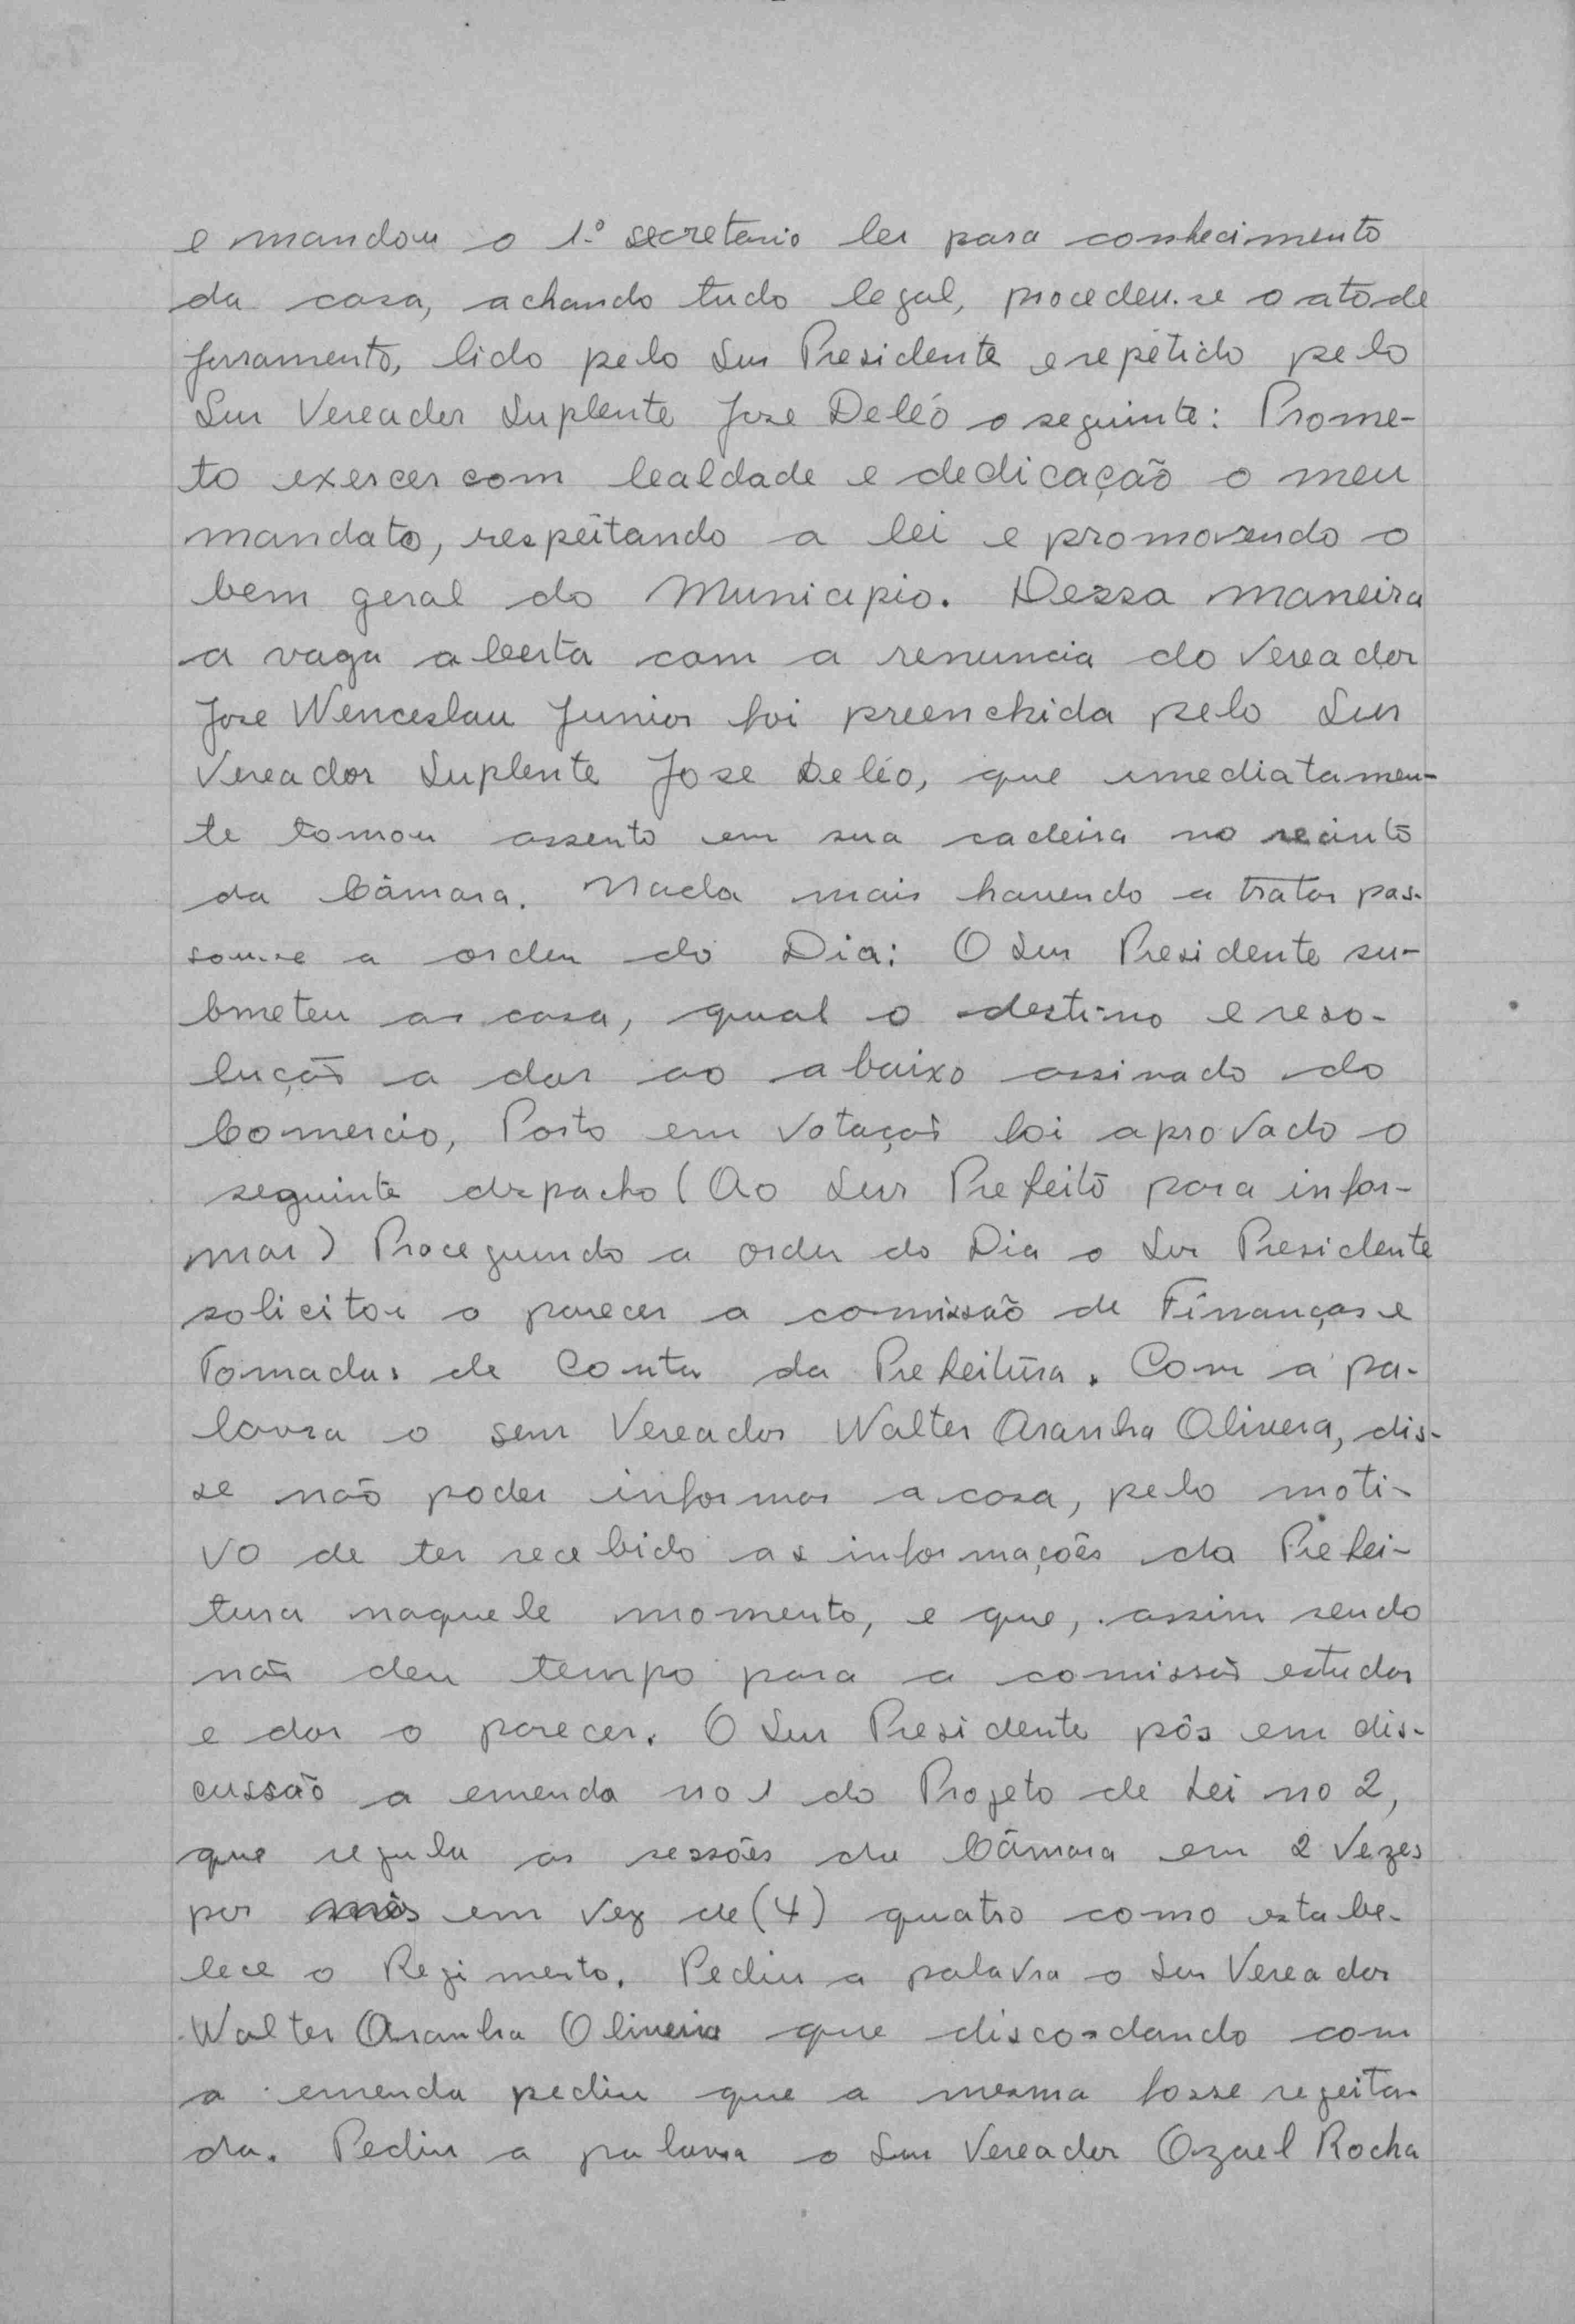 e mandou o 1.º secretario ler para conhecimento
da casa, achando tudo legal, procedeu-se o ato de
juramento, lido pelo Snr Presidente e repetido pelo
Snr Vereador Suplente Jose Deléo o seguinte: Prome-
to exercer com lealdade e dedicação o meu
mandato, respeitando a lei e promovendo o
bem geral do Municipio. Dessa maneira
a vaga aberta com a renuncia do Vereador
Jose Wenceslau Junior foi preenchida pelo Snr
Vereador Suplente Jose Deléo, que imediatamen-
te tomou assento em sua cadeira no recinto
da Câmara. Nada mais havendo a tratar pas-
sou-se a orden do Dia: O Snr Presidente su-
bmeteu as casa, qual o destino e reso-
lução a dar ao abaixo assinado do
Comercio, Posto em votação foi aprovado o
seguinte depacho (Ao Snr Prefeito para infor-
mar) Proceguindo a orden do Dia o Snr Presidente
solicitou o parecer a comissão de Finanças e
Tomadas de Conta da Prefeitura. Com a pa-
lavra o senr Vereador Walter Aranha Olivera, dis-
se não poder informar a casa, pelo moti-
vo de ter recebido as informações da Prefei-
tura naquele momento, e que, assim sendo
não deu tempo para a comissão estudar
e dar o parecer. O Snr Presidente pôs em dis-
cussão a emenda no 1 do Projeto de Lei no 2,
que regula as sessões da Câmara em 2 Vezes
por mês em vez de (4) quatro como estabe-
lece o Regimento. Pediu a palavra o Snr Vereador
Walter Aranha Oliveira que discordando com
a emenda pediu que a mesma fosse regeita-
da. Pediu a palavra o Snr Vereador Ozael Rocha